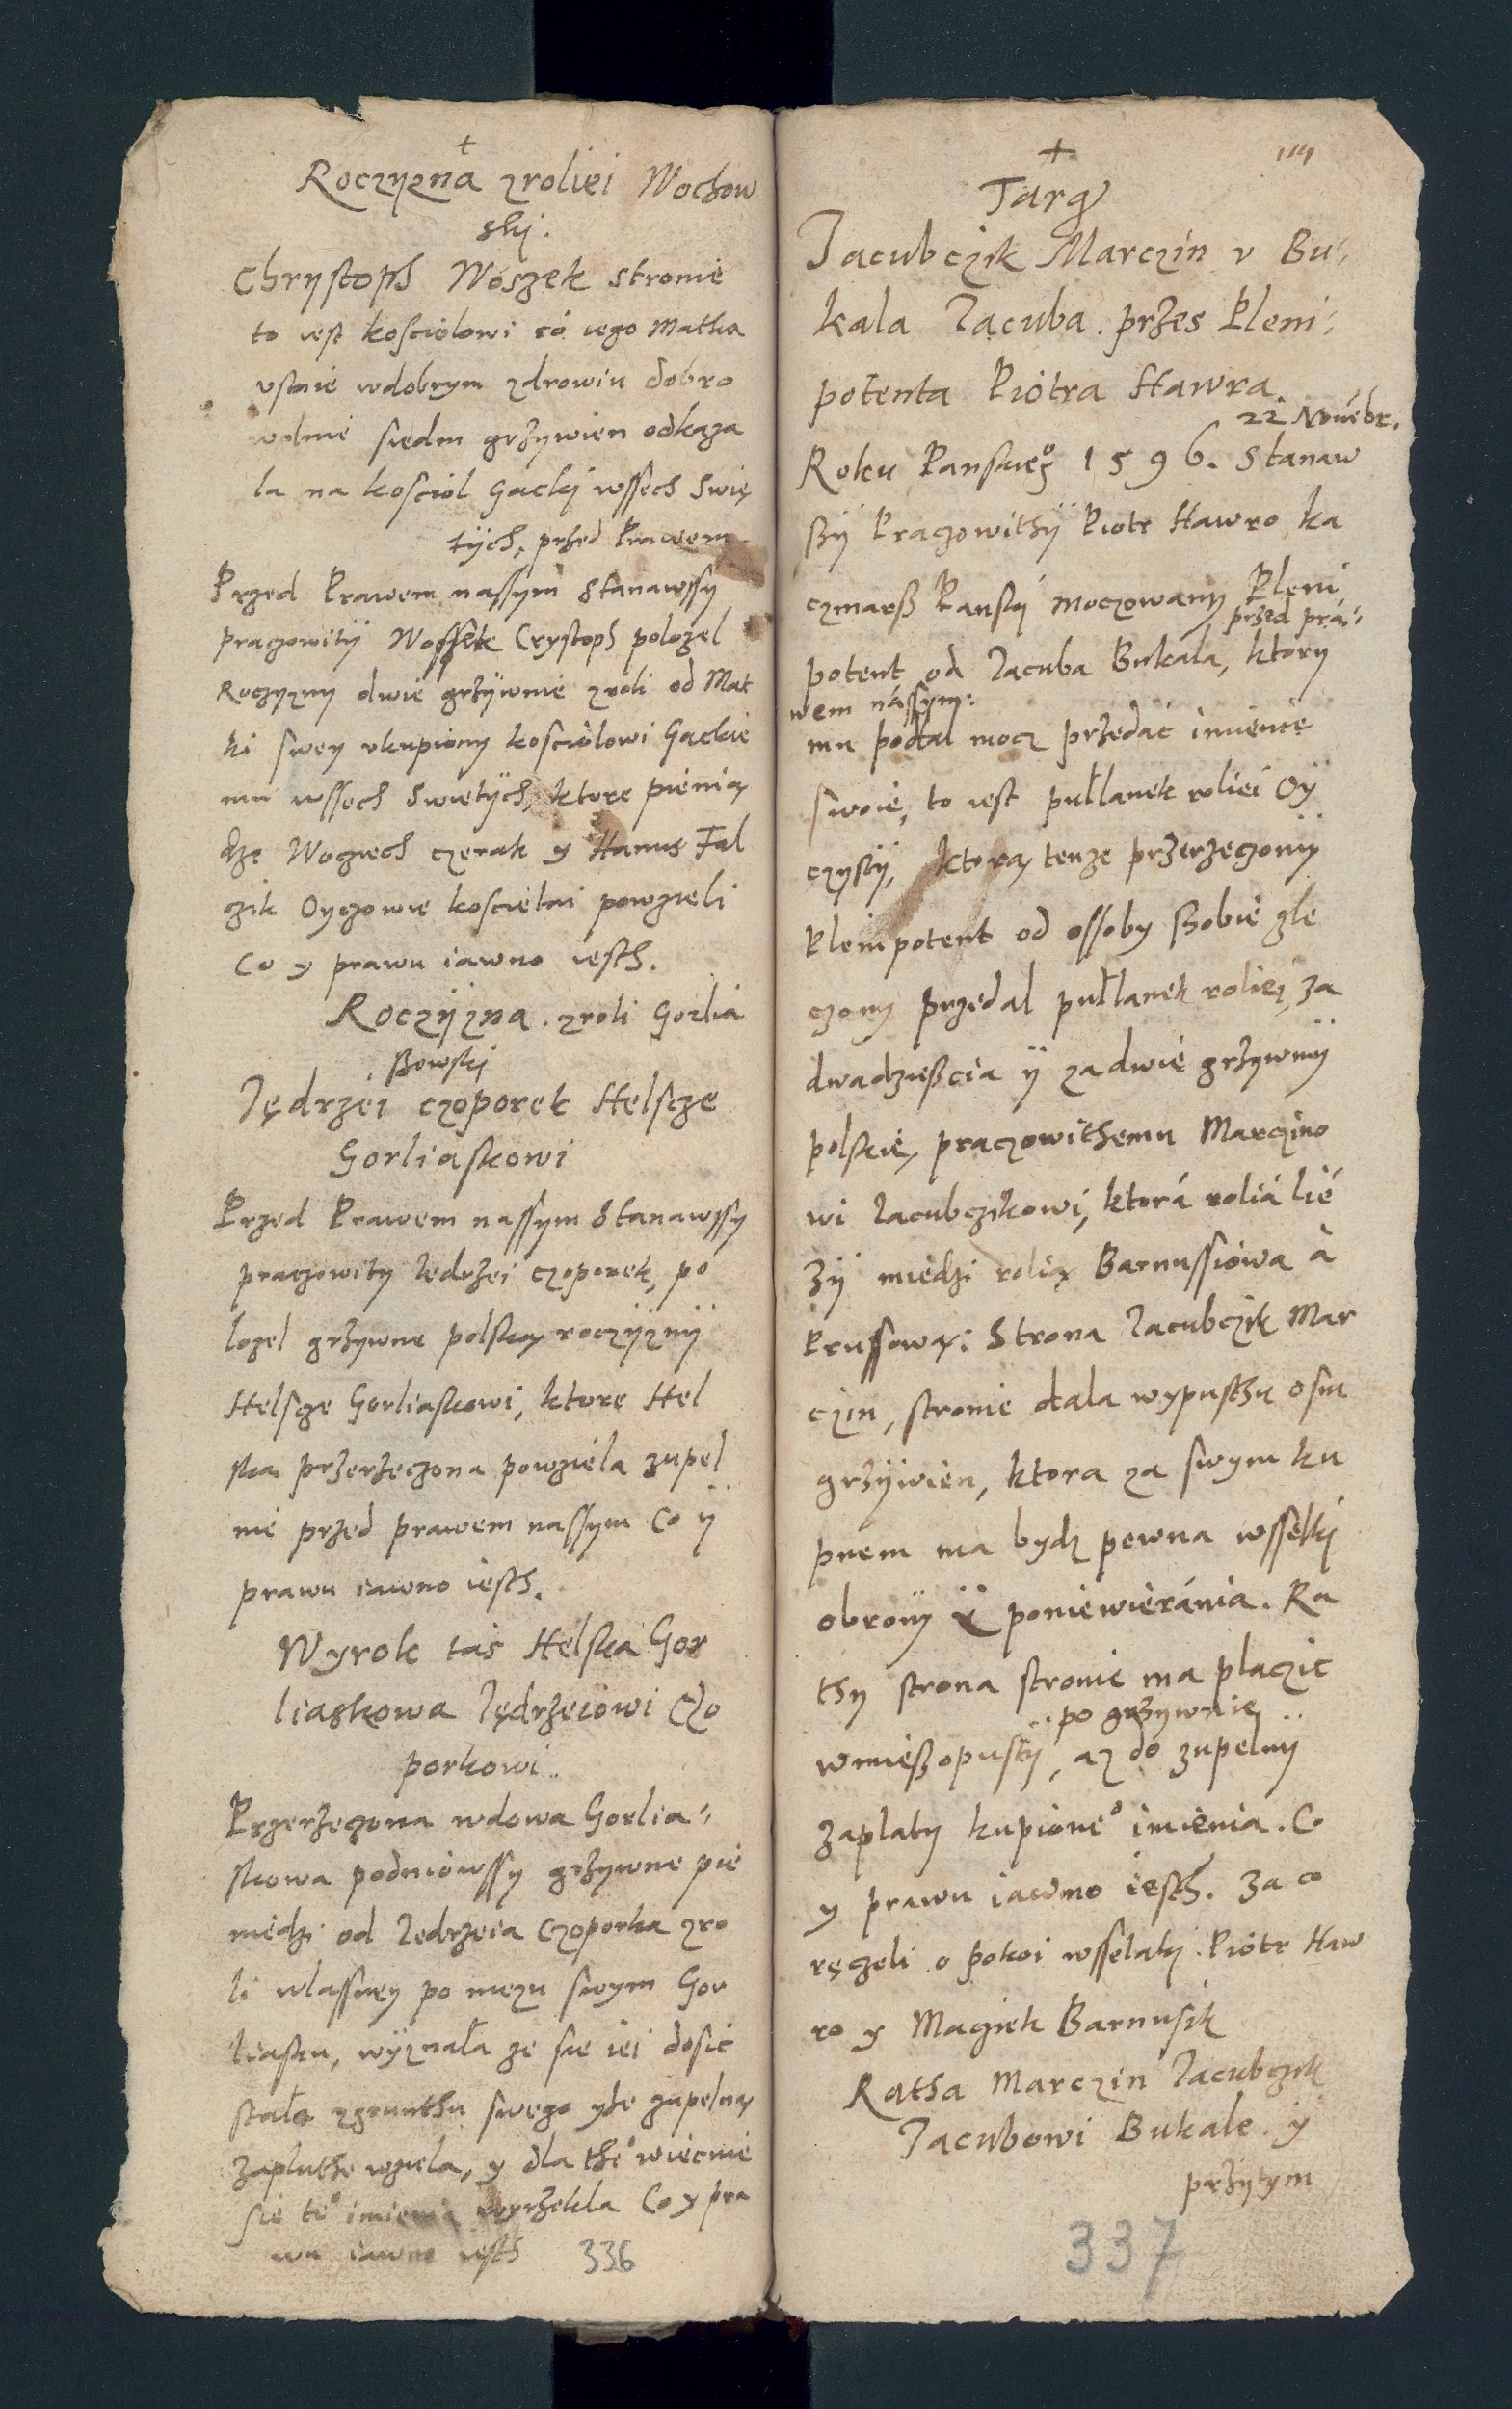 +
Roczyzna zroliei Wochow
skj.
Chrystoph Woszek stronie
to iest kosciolowi có iego Matka
vstnie wdobrym zdrowiu dobro
wolnie siedm grzywien odkaza
la na kosciol Gackj wssech Swię
tÿch, przed Prawem.
Przed Prawem nassym Stanawssy
praczowitÿ Wossek Crystoph polozel
Roczyzny dwie grzÿwnie zroli od Mat
ki swey vkupiony kosciolowi Gackie
mu wssech Swietÿch, ktore pienią
dze Wogiech czerak y Hanus Fal
zik Oyczowie koscielni powzieli
Co y prawu iawno iesth.
Roczÿzna zroli Gorlia
ssowskj
Jędrzei czoporek Helscze
Gorliaskowi
Przed Prawem nassym Stanawssy
praczowity Iedrzei czoporek, po
lozel grzywne polską roczÿznÿ
Helscze Gorliaskowi, ktore Hel
ska przerzeczona powziela zupel
nie przed prawem nassym Co ÿ
prawu iawno iesth.
Wyrok tás Helska Gor
liaskowa Jędrzeiowi Czo
porkowi..
Przerzeczona wdowa Gorlia-
skowa podniowssy grzywne pie
niedzi od Iedrzeia Czoporka zro
li wlassney po mezu swym Gor
liasku, wÿznała ze sie iei dosic
stało zgrunthu swego yze zupelną
zaplathe wziela, y dla the° wiecnie
sie te° imienia wyrzekla Co y pra
wu iawno iesth
336
+
114
Targ
Jacubczik Marczin v Bu-
kala Iacuba. przes Pleni-
potenta Piotra Hawra.
22 Novebr.
Roku Panskieg° 1596. Stanaw
ßÿ Praczowithÿ Piotr Hawro ka
czmarß Panskj moczowany Pleni
przed pra-
potent od Iacuba Bukala, ktory
wem nassym:
mu podal mocz przedać imienie
swoie, to iest pułlanek roliei Oÿ
czystÿ, ktorą tenze przerzeczonÿ
Plenipotent od ossoby ßobie zle
czony przedal pułlanek roliei za
dwadzießcia ÿ zadwie grzywnÿ
polskie, praczowithemu Marczino
wi Iacubczikowi, ktorá roliá lié
zÿ miedzi rolią Barnussiowa à
Prussową: Strona Iacubczik Mar
czin, stronie dala wypusthu osm
grzÿwien, ktora za swym ku
pnem ma bydz pewna wsselkj
obronÿ ÿ poniewieránia. Ra
thy strona stronie ma placzic
po grzywnie
wmießopustÿ, az do zupelnÿ
zaplaty kupione° imienia. Co
y prawu iawno iesth. Za co
ręczeli o pokoi wsselaki. Piotr Haw
ro y Magiek Barnusik
Ratha Marczin Iacubczik
Jacubowi Bukale. ÿ
przÿtym
337